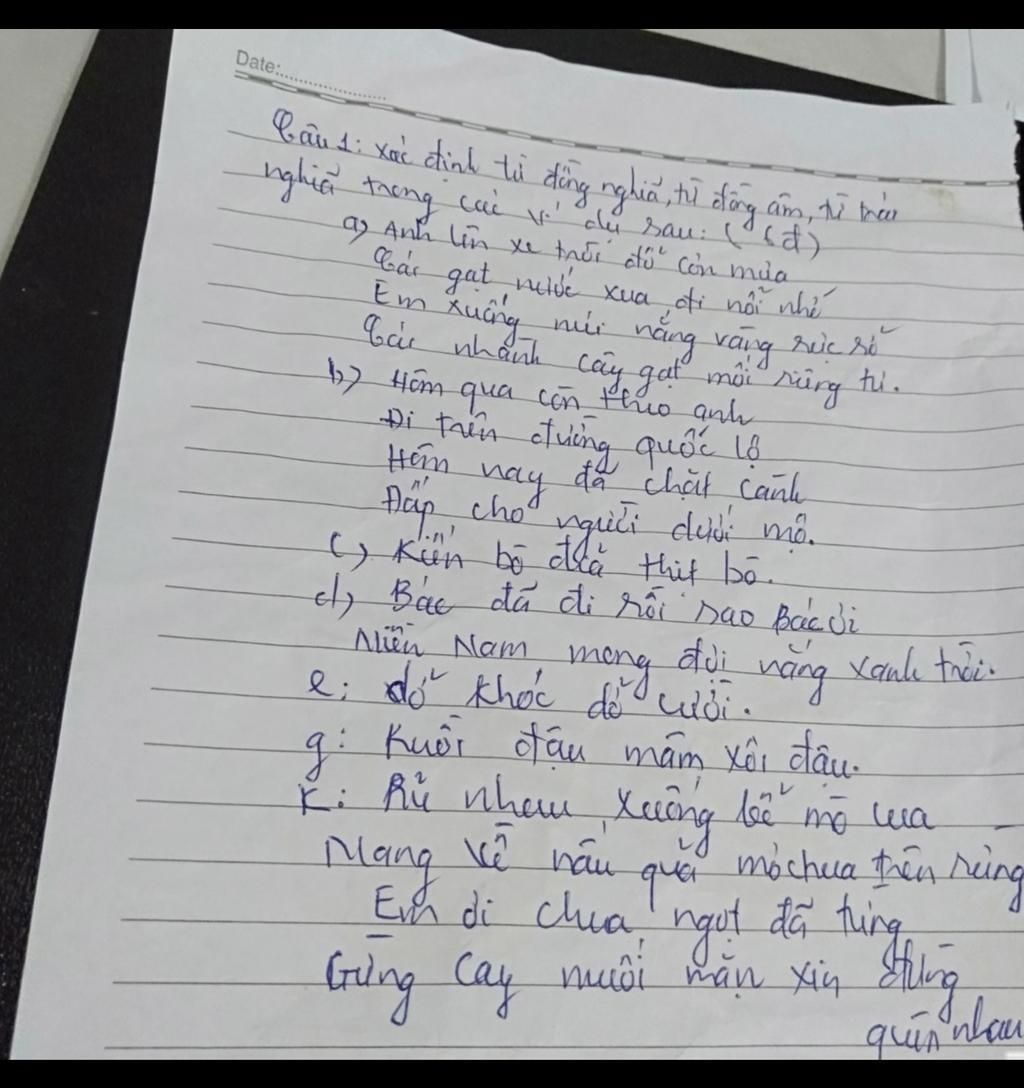 Date:
Câu 1: xác định từ đồng nghĩa, từ đồng âm, từ trái
nghĩa trong các ví dụ sau: (6đ)
a) Anh lên xe trời đổ cơn mưa
Cái gạt nước xua đi nỗi nhớ
Em xuống núi nắng vàng rực rỡ
Cái nhành cây gạt mối riêng tư.
b) Hôm qua còn theo anh
Đi trên đường quốc lộ
Hôm nay đã chặt cành
Đắp cho người dưới mộ.
c) Kiến bò đĩa thịt bò.
d) Bác đã đi rồi sao Bác ơi
Miền Nam mong đợi nắng xanh trời.
e: dở khóc dở cười.
g: Ruồi đậu mâm xôi đậu.
k: Rủ nhau xuống bể mò cua
Mang về nấu quả mơ chua trên rừng
Em đi chua ngọt đã từng
Gừng cay muối mặn xin đừng
quên nhau